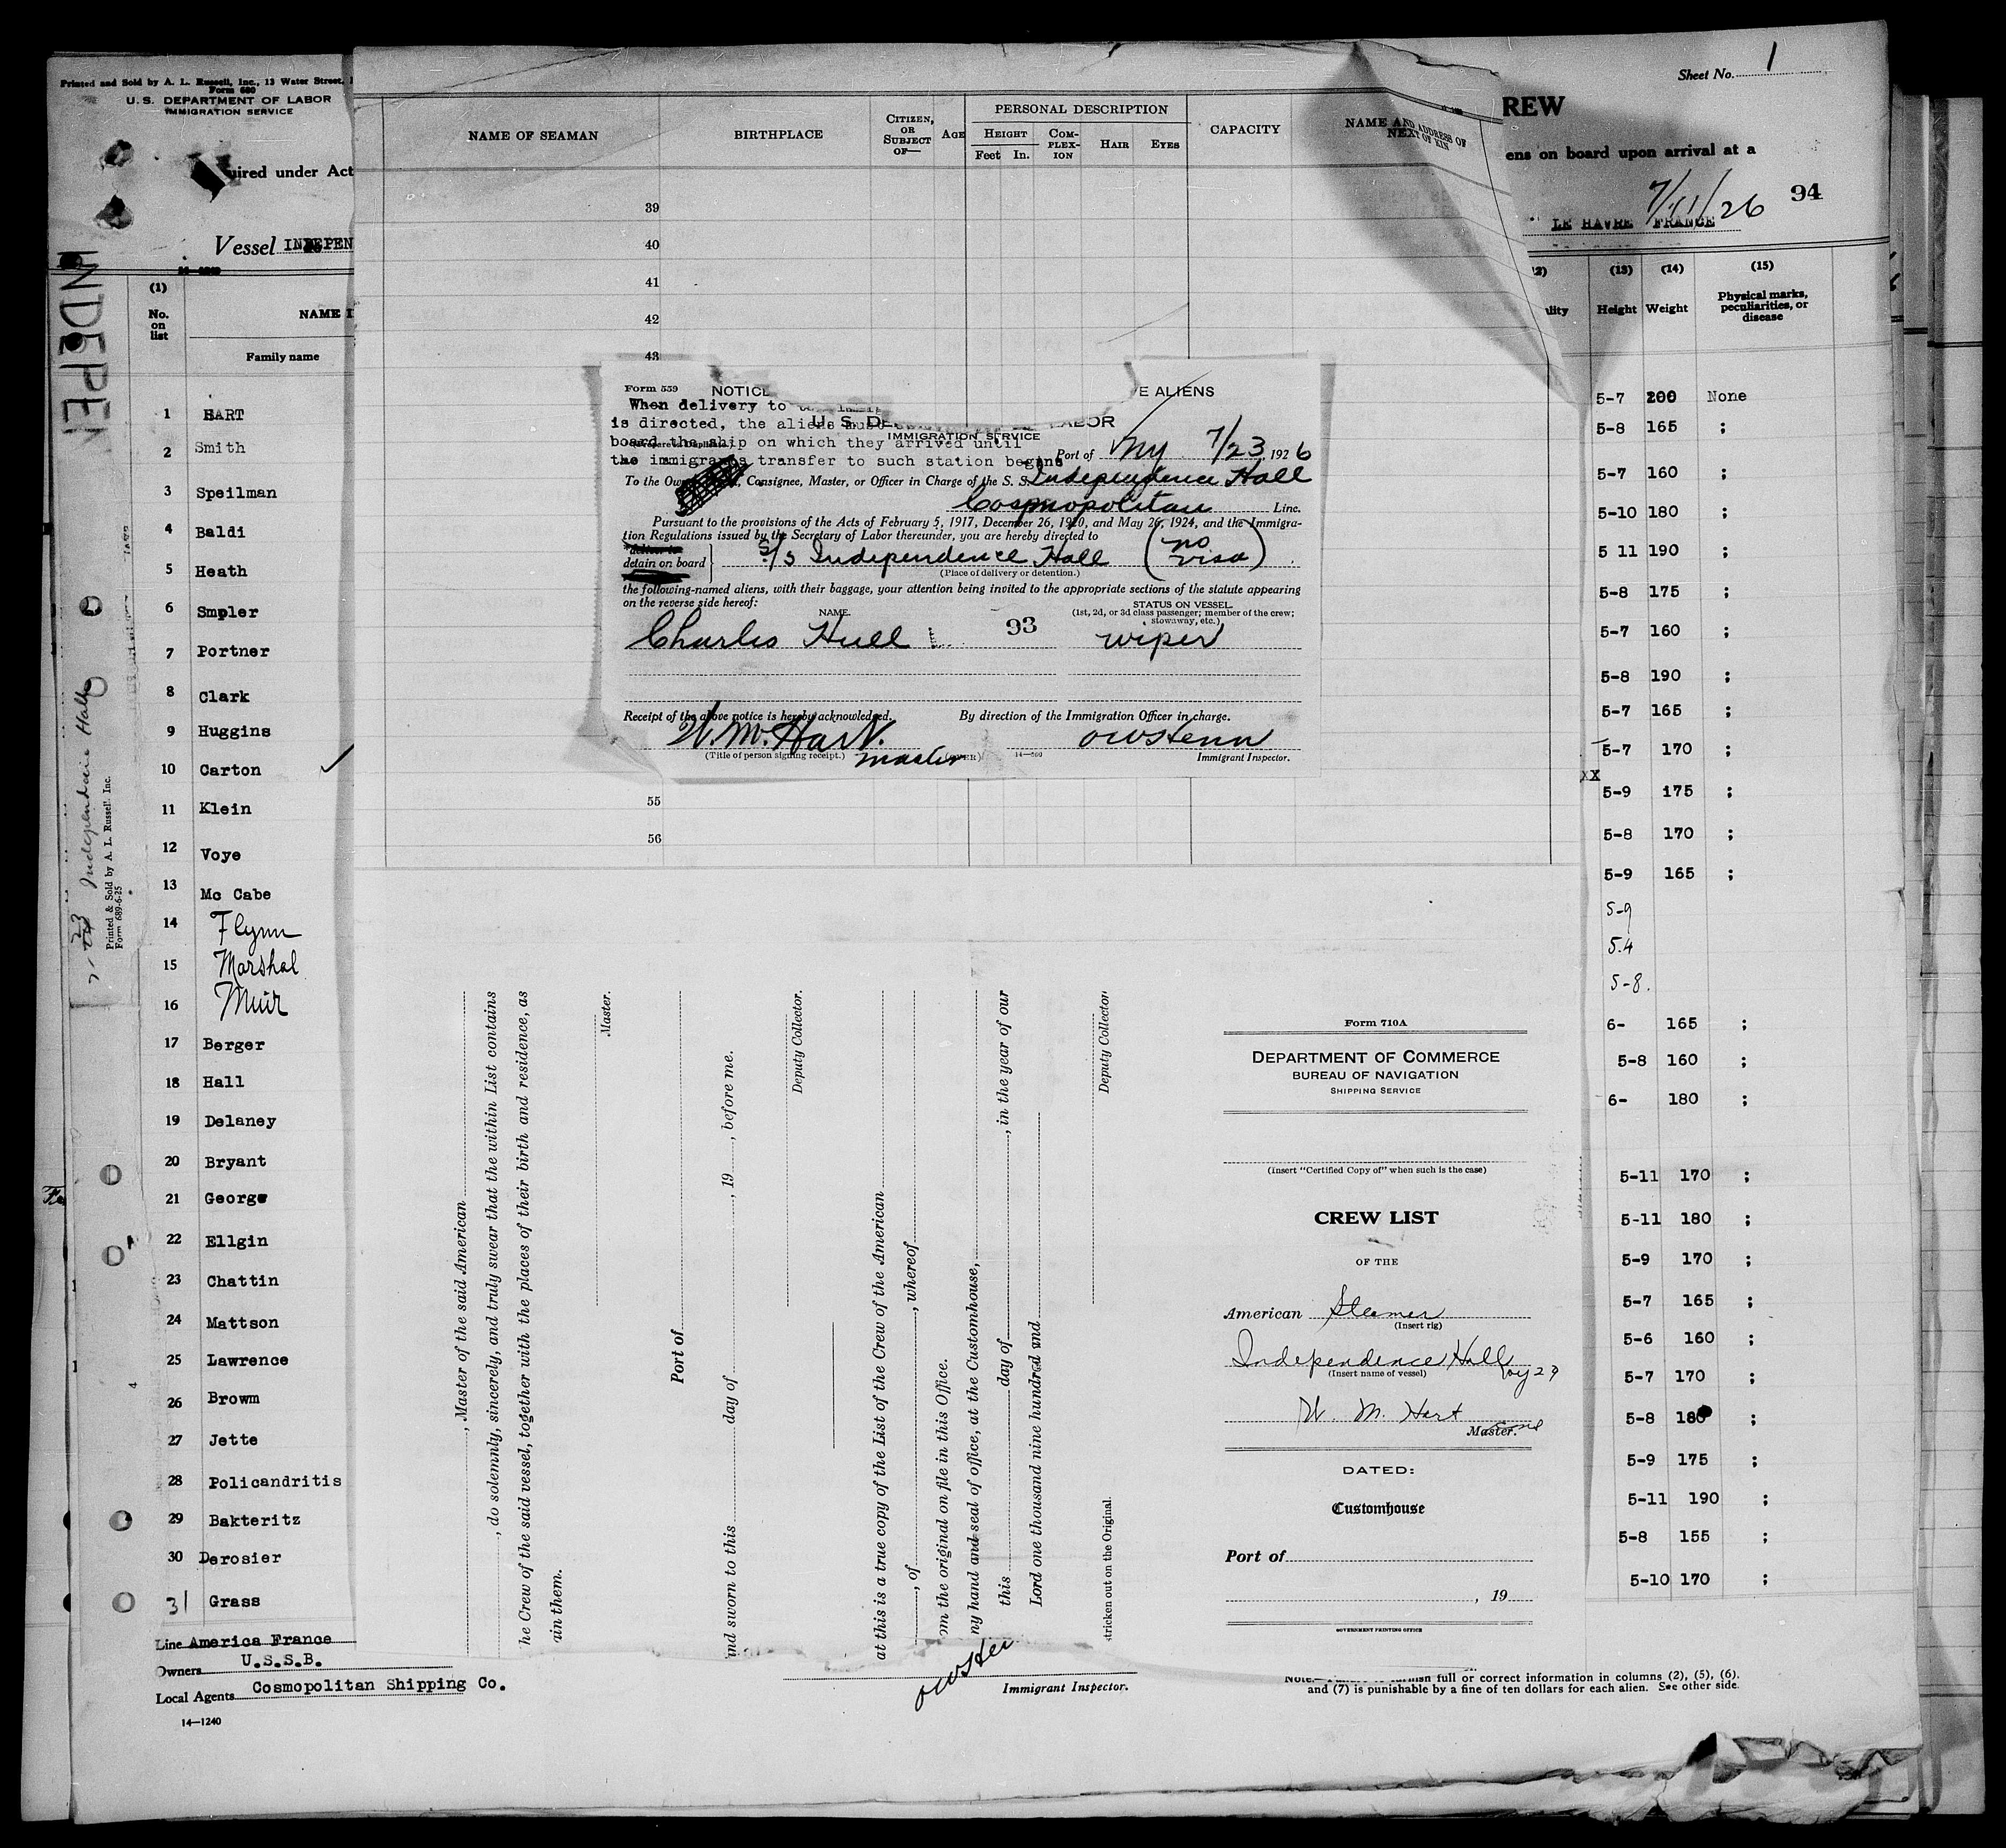 Printed and Sold by A. L. Russell, Inc., 13 Water Street,
Form 680
U. S. DEPARTMENT OF LABOR
IMMIGRATION SERVICE
uired under Act
Vessel INDEPEN
INDEPEN
(1)
No. on list
NAME I
Family name
1 HART
2 Smith
3 Speilman
4 Baldi
5 Heath
6 Smpler
7 Portner
8 Clark
9 Huggins
10 Carton ✓
11 Klein
12 Voye
13 Mc Cabe
14 Flynn
15 Marshal
16 Muir
17 Berger
18 Hall
19 Delaney
20 Bryant
21 George
22 Ellgin
23 Chattin
24 Mattson
25 Lawrence
26 Browm
27 Jette
28 Policandritis
29 Bakteritz
30 Derosier
31 Grass
Line America France
Owners U.S.S.B.
Local Agents Cosmopolitan Shipping Co.
14—1240
Independence Hall
Printed & Sold by A. L. Russell, Inc.
Form 689-6-25
NAME OF SEAMAN
BIRTHPLACE
CITIZEN, OR SUBJECT OF—
AGE
PERSONAL DESCRIPTION
HEIGHT
Feet In.
COMPLEX-ION
HAIR
EYES
CAPACITY
NAME AND ADDRESS OF NEXT OF KIN
39
40
41
42
43
55
56
Form 559
NOTIC
E ALIENS
When delivery to
is directed, the aliens must
board the ship on which they arrived until
the immigrants transfer to such station begins
U. S. DE
LABOR
IMMIGRATION SERVICE
Port of Ny 7/23, 1926
To the Ow Consignee, Master, or Officer in Charge of the S. S. Independence Hall
Cosmopolitan Line.
Pursuant to the provisions of the Acts of February 5, 1917, December 26, 1920, and May 26, 1924, and the Immigra-
tion Regulations issued by the Secretary of Labor thereunder, you are hereby directed to
deliver to
detain on board } S/S Independence Hall (no visa)
(Place of delivery or detention.)
the following-named aliens, with their baggage, your attention being invited to the appropriate sections of the statute appearing
on the reverse side hereof:
NAME.
STATUS ON VESSEL.
(1st, 2d, or 3d class passenger; member of the crew; stowaway, etc.)
Charles Hull 93 wiper
Receipt of the above notice is hereby acknowledged.
By direction of the Immigration Officer in charge.
W. M. Hart.
(Title of person signing receipt.) master
14—660
Immigrant Inspector.
, Master of the said American
, do solemnly, sincerely, and truly swear that the within List contains
he Crew of the said vessel, together with the places of their birth and residence, as
in them.
Master.
Port of
nd sworn to this day of , 19 , before me.
Deputy Collector.
at this is a true copy of the List of the Crew of the American
, of , whereof
om the original on file in this Office.
ny hand and seal of office, at the Customhouse,
this day of , in the year of our
Lord one thousand nine hundred and
Deputy Collector
stricken out on the Original.
Form 710A
DEPARTMENT OF COMMERCE
BUREAU OF NAVIGATION
SHIPPING SERVICE
(Insert "Certified Copy of" when such is the case)
CREW LIST
OF THE
American Steamer
(Insert rig)
Independence Hall
(Insert name of vessel)
W. M. Hart
Master.
DATED:
Customhouse
Port of
, 19
GOVERNMENT PRINTING OFFICE
Immigrant Inspector.
full or correct information in columns (2), (5), (6).
and (7) is punishable by a fine of ten dollars for each alien. See other side.
Sheet No. 1
REW
ens on board upon arrival at a
7/11/26 94
LE HAVRE FRANCE
(13) (14) (15)
Height Weight Physical marks, peculiarities, or disease
5-7 200 None
5-8 165 ;
5-7 160 ;
5-10 180 ;
5 11 190 ;
5-8 175 ;
5-7 160 ;
5-8 190 ;
5-7 165 ;
5-7 170 ;
xX
5-9 175 ;
5-8 170 ;
5-9 165 ;
5-9
5.4
5-8.
6- 165 ;
5-8 160 ;
6- 180 ;
5-11 170 ;
5-11 180 ;
5-9 170 ;
5-7 165 ;
5-6 160 ;
5-7 170 ;
5-8 180 ;
5-9 175 ;
5-11 190 ;
5-8 155 ;
5-10 170 ;